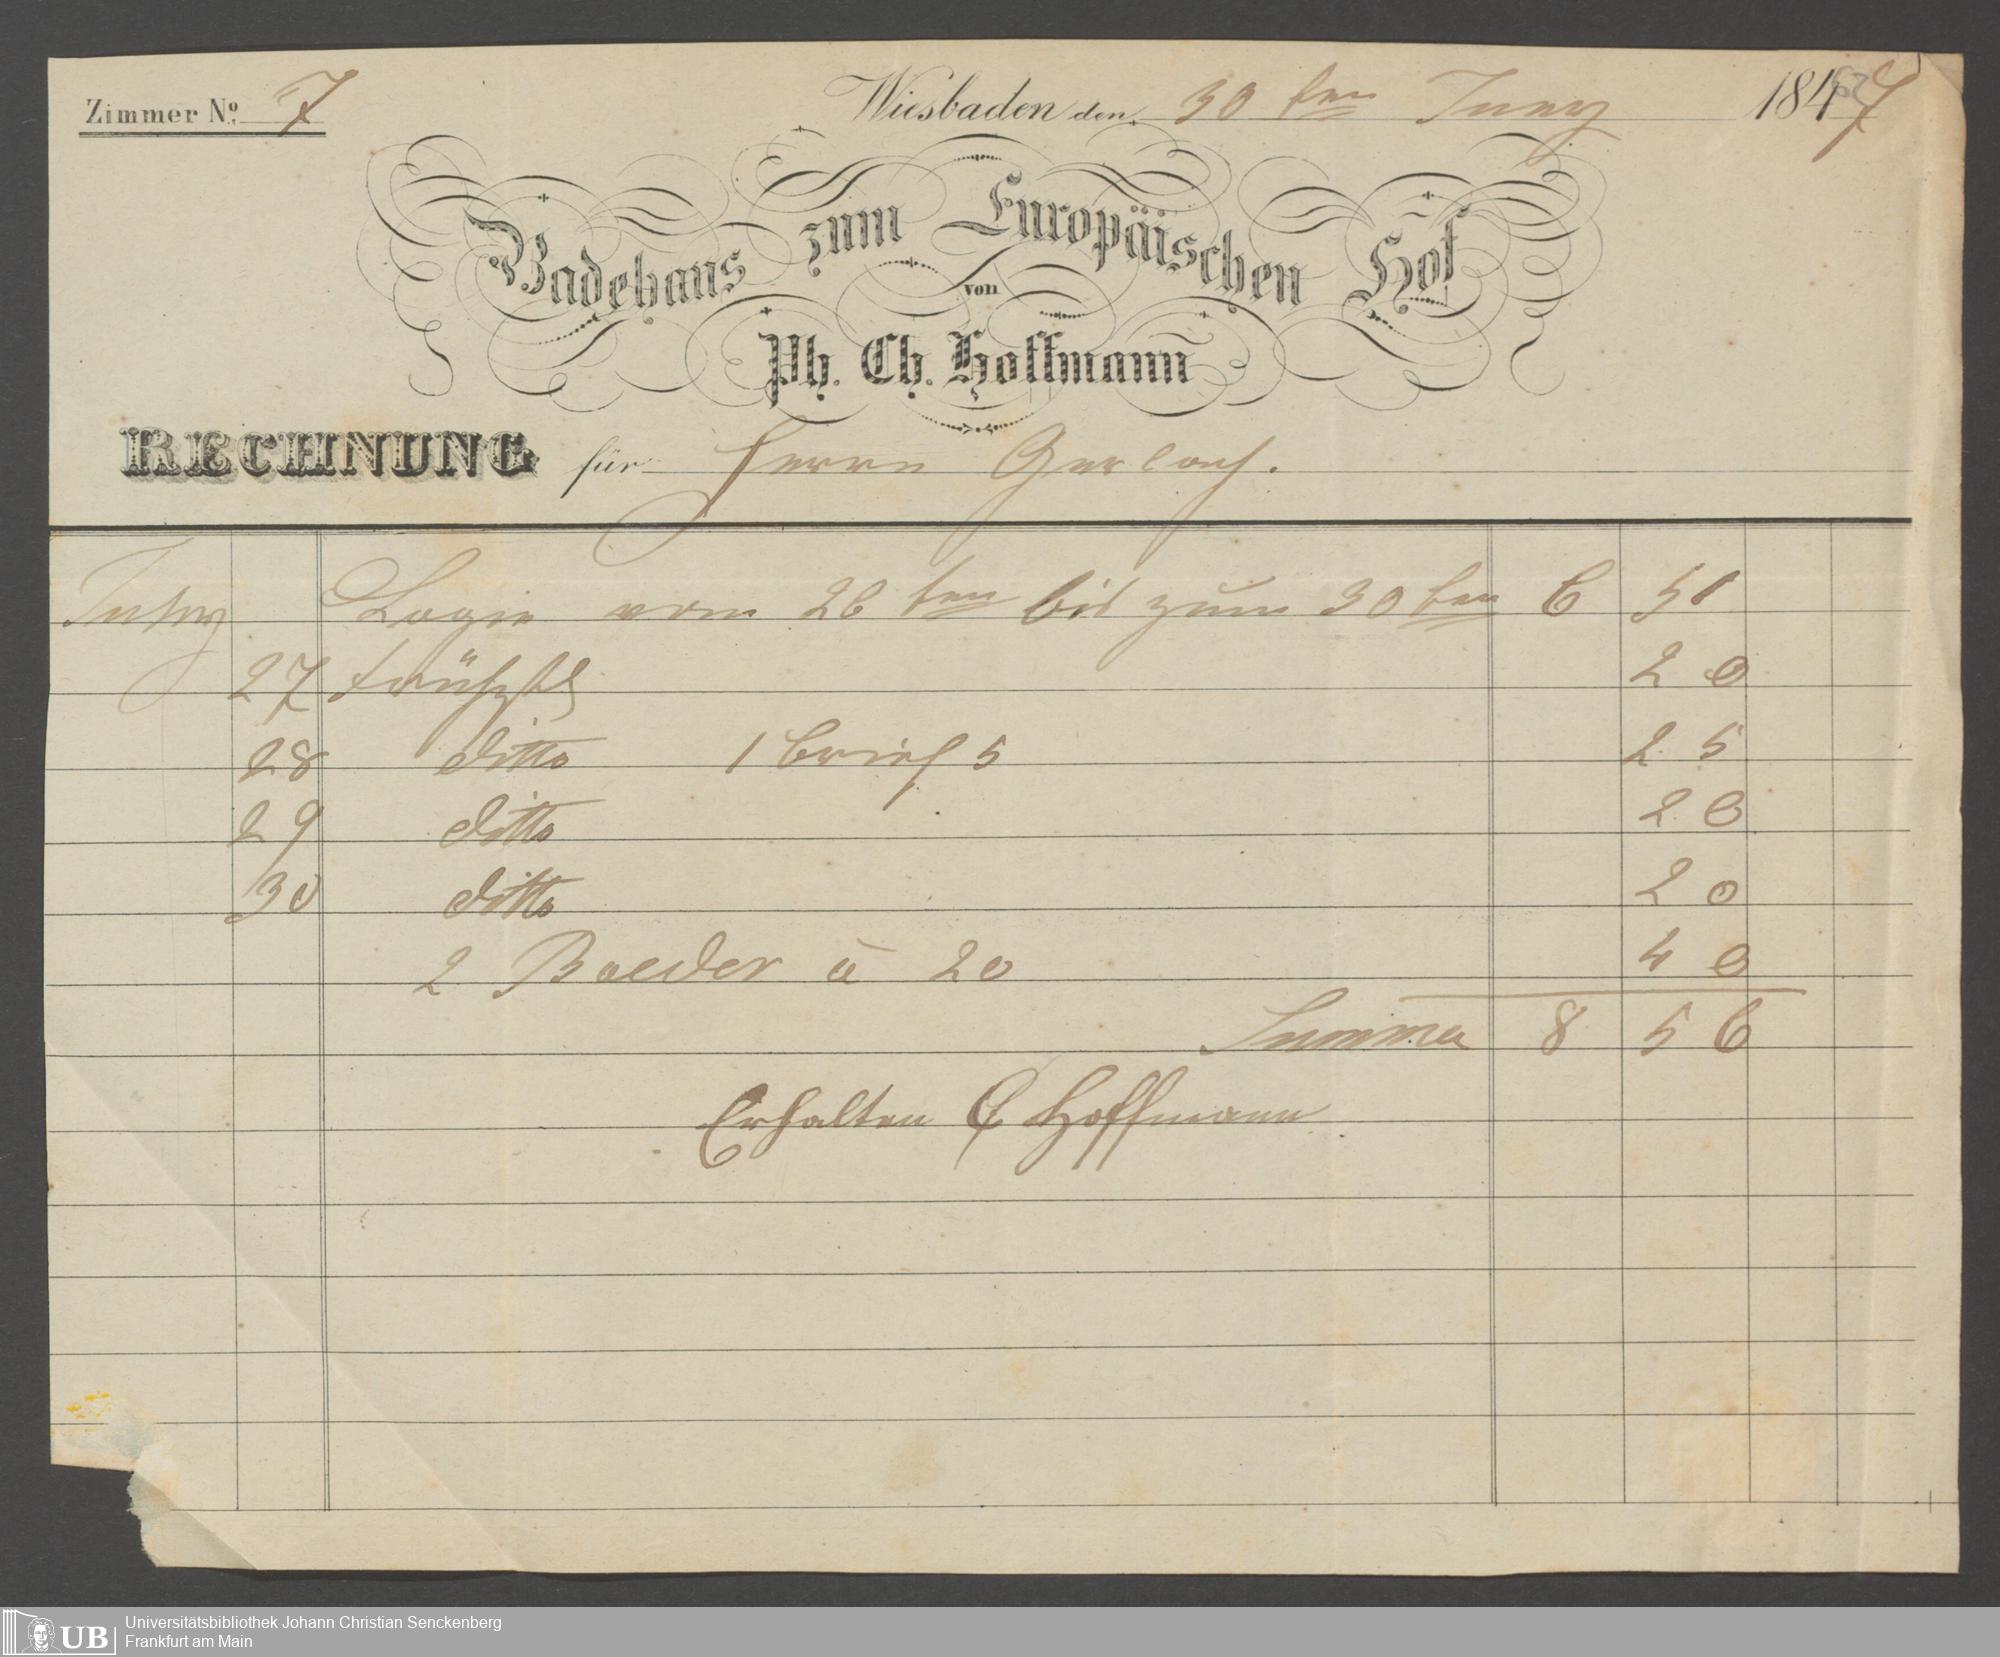 Zimmer No. 7
Wiesbaden den 30ten Juny 1847
Badehaus zum Europäischen Hof
von
Ph. Ch. Hoffmann
RECHNUNG für Herrn Gerlach.
Juny Logie vom 26ten bis zum 30ten 6 51
27 Frühstk 20
28 ditto 1 brief 5 25
29 ditto 20
30 ditto 20
2 Baeder à 20 40
Summa 8 56
Erhalten C Hoffmann
UB Universitätsbibliothek Johann Christian Senckenberg
Frankfurt am Main